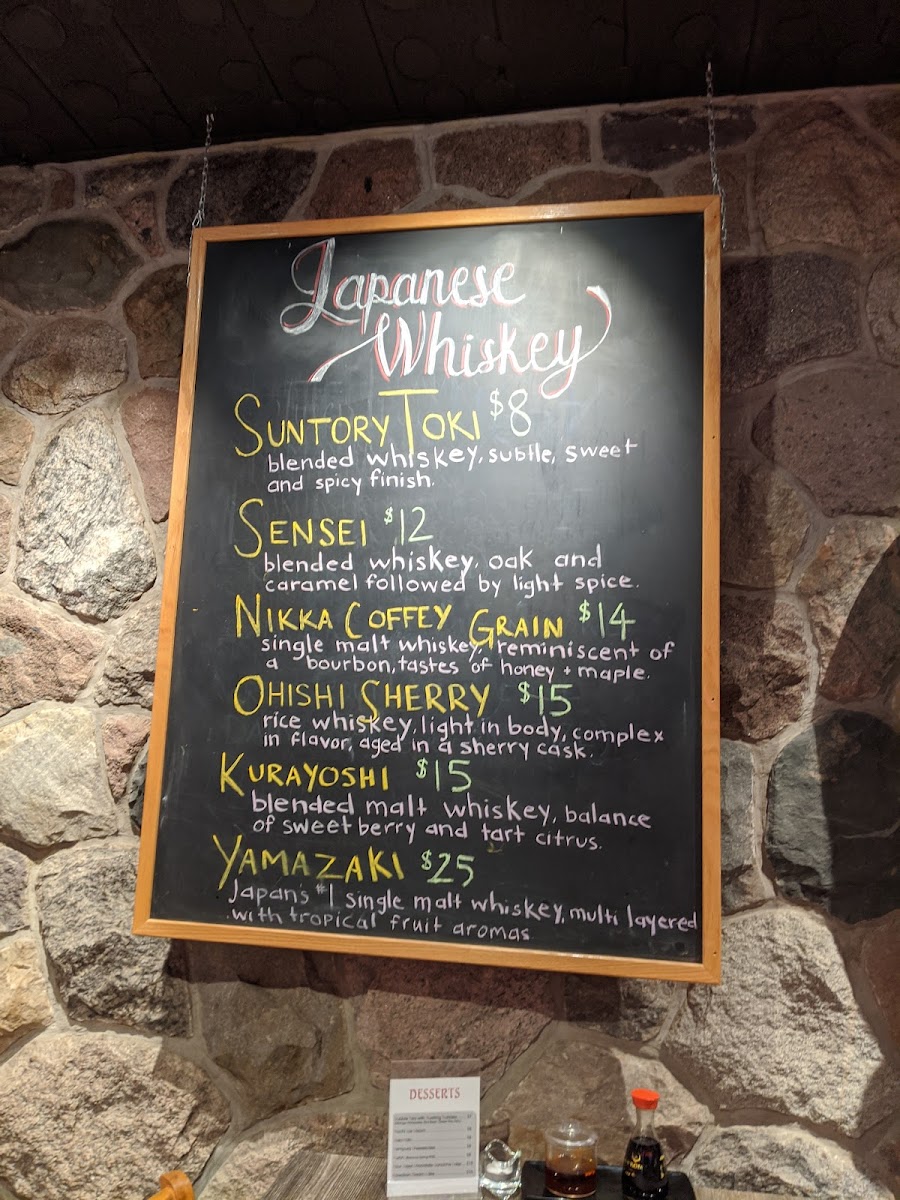 Japanese
Whiskey
SUNTORY TOKI $8
blended whiskey, subtle, sweet
and spicy finish.
SENSEI $12
blended whiskey, oak and
caramel followed by light spice.
NIKKA COFFEY GRAIN $14
single malt whiskey, reminiscent of
a bourbon, tastes of honey + maple.
OHISHI SHERRY $15
rice whiskey, light in body, complex
in flavor, aged in a sherry cask.
KURAYOSHI $15
blended malt whiskey, balance
of sweet berry and tart citrus.
YAMAZAKI $25
Japan's #1 single malt whiskey, multi layered
with tropical fruit aromas
DESSERTS